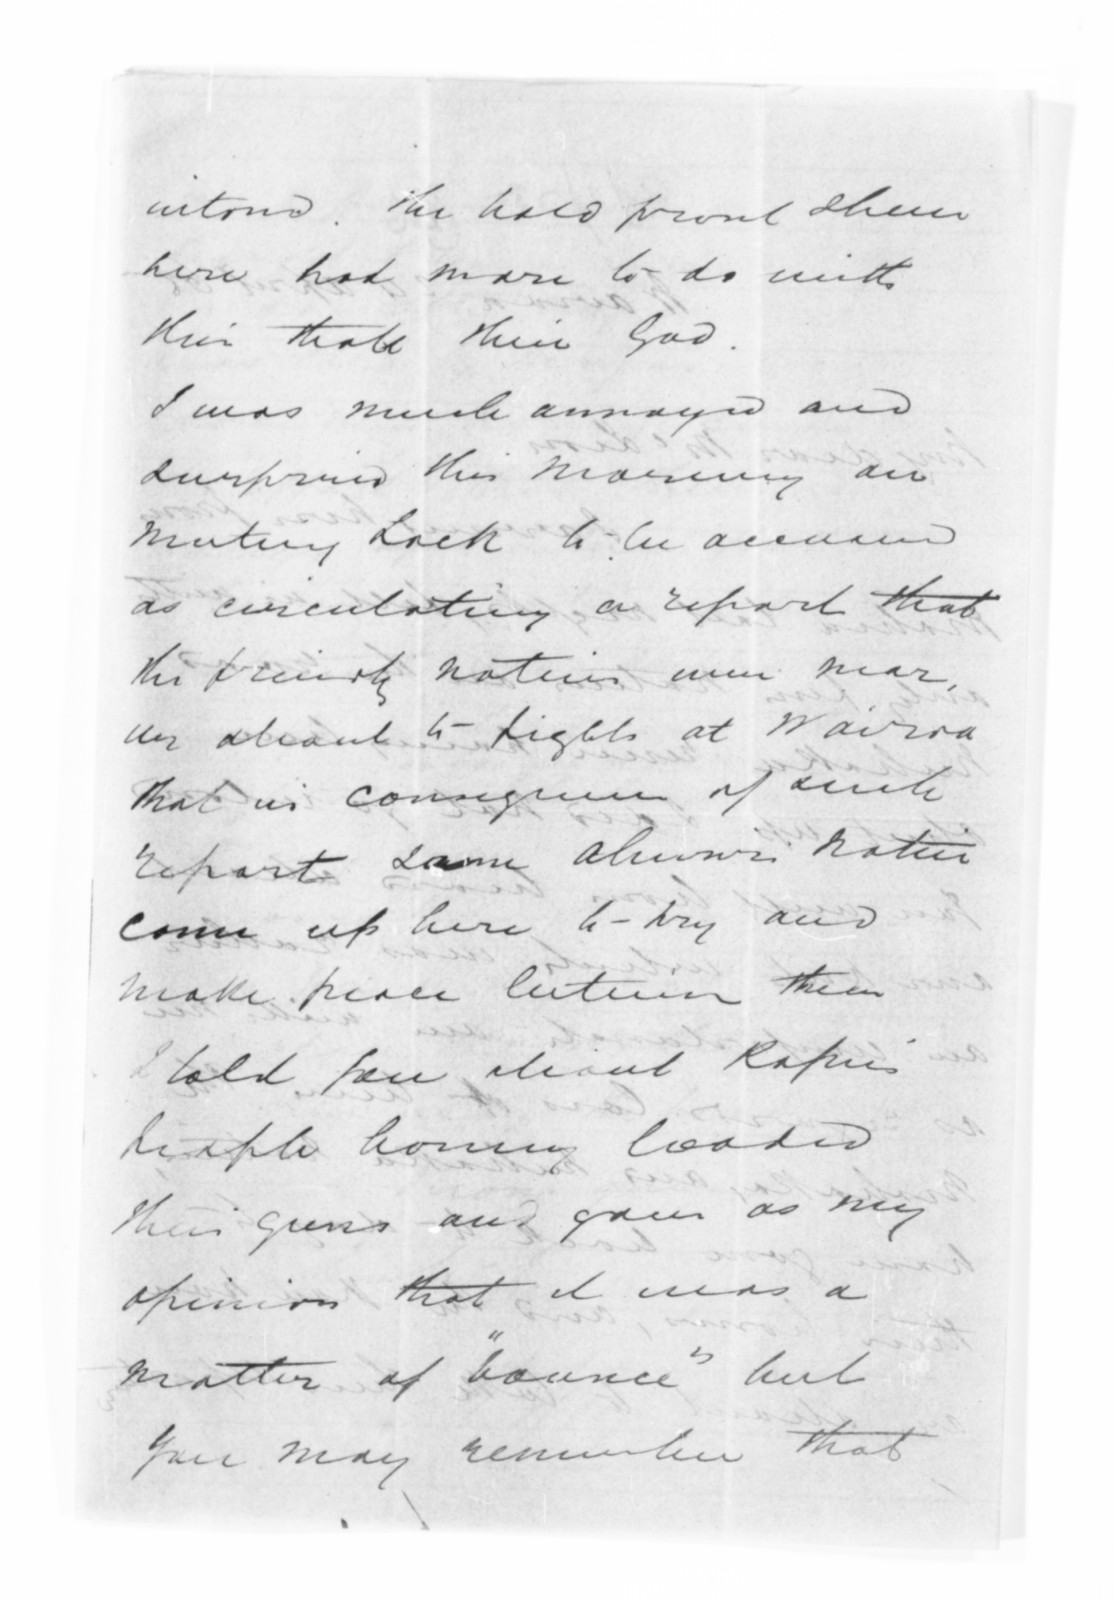 intend. The bold front shewn
here had more to do with
this than their God.
I was much annoyed and
surprised this morning on
meeting Lock to be accused
as circulating a report that
the friendly natives were near,
ly about to fight at Wairoa
that in consequence of such
report some Ahuriri Natives
come up here to try and
make peace between them
I told you about Kopu's
people having loaded
their guns and gave as my
opinion that it was a
matter of "bounce" but
you may remember that